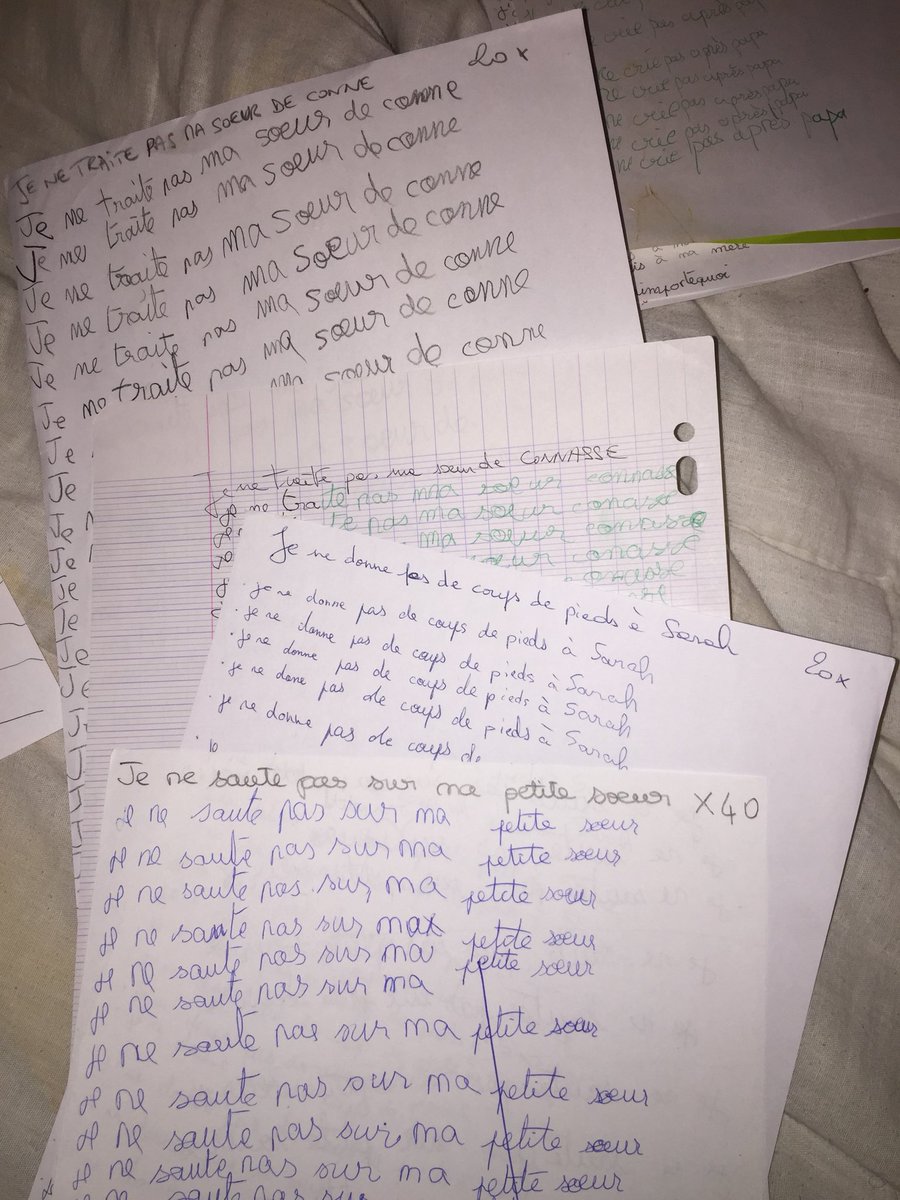 20x
JE NE TRAITE PAS MA SOEUR DE CONNE
Je ne traite pas ma soeur de conne
Je ne traite pas ma soeur de conne
Je ne traite pas ma soeur de conne
Je ne traite pas ma soeur de conne
Je ne traite pas ma soeur de conne
Je ne traite pas ma soeur de conne
Je ma soeur de conne
Je
Je
Je
Je
Je
crie pas après papa
ne crie pas après papa
ne crie pas après papa
ne crie pas après papa
ne crie pas après papa
ne crit pas après papa
à ma mère
importequoi
Je ne traite pas ma soeur de CONNASSE
je ne traite pas ma soeur connasse
te pas ma soeur conasse
ma soeur connasse
soeur conasse
onasse
sse
Je ne donne pas de coups de pieds à Sarah
20x
. je ne donne pas de coups de pieds à Sarah
. je ne donne pas de coups de pieds à Sarah
. je ne donne pas de coups de pieds à Sarah
. je ne done pas de coups de pieds à Sarah
. je ne donne pas de coups de
Je ne saute pas sur ma petite soeur X40
je ne saute pas sur ma petite soeur
je ne saute pas sur ma petite soeur
je ne saute pas sur ma petite soeur
je ne saute pas sur max petite soeur
je ne saute pas sur ma petite soeur
je ne saute pas sur ma
je ne saute pas sur ma petite soeur
je ne saute pas sur ma petite soeur
je ne saute pas sur ma petite soeur
je ne saute pas sur ma petite soeur
ne saute pas sur